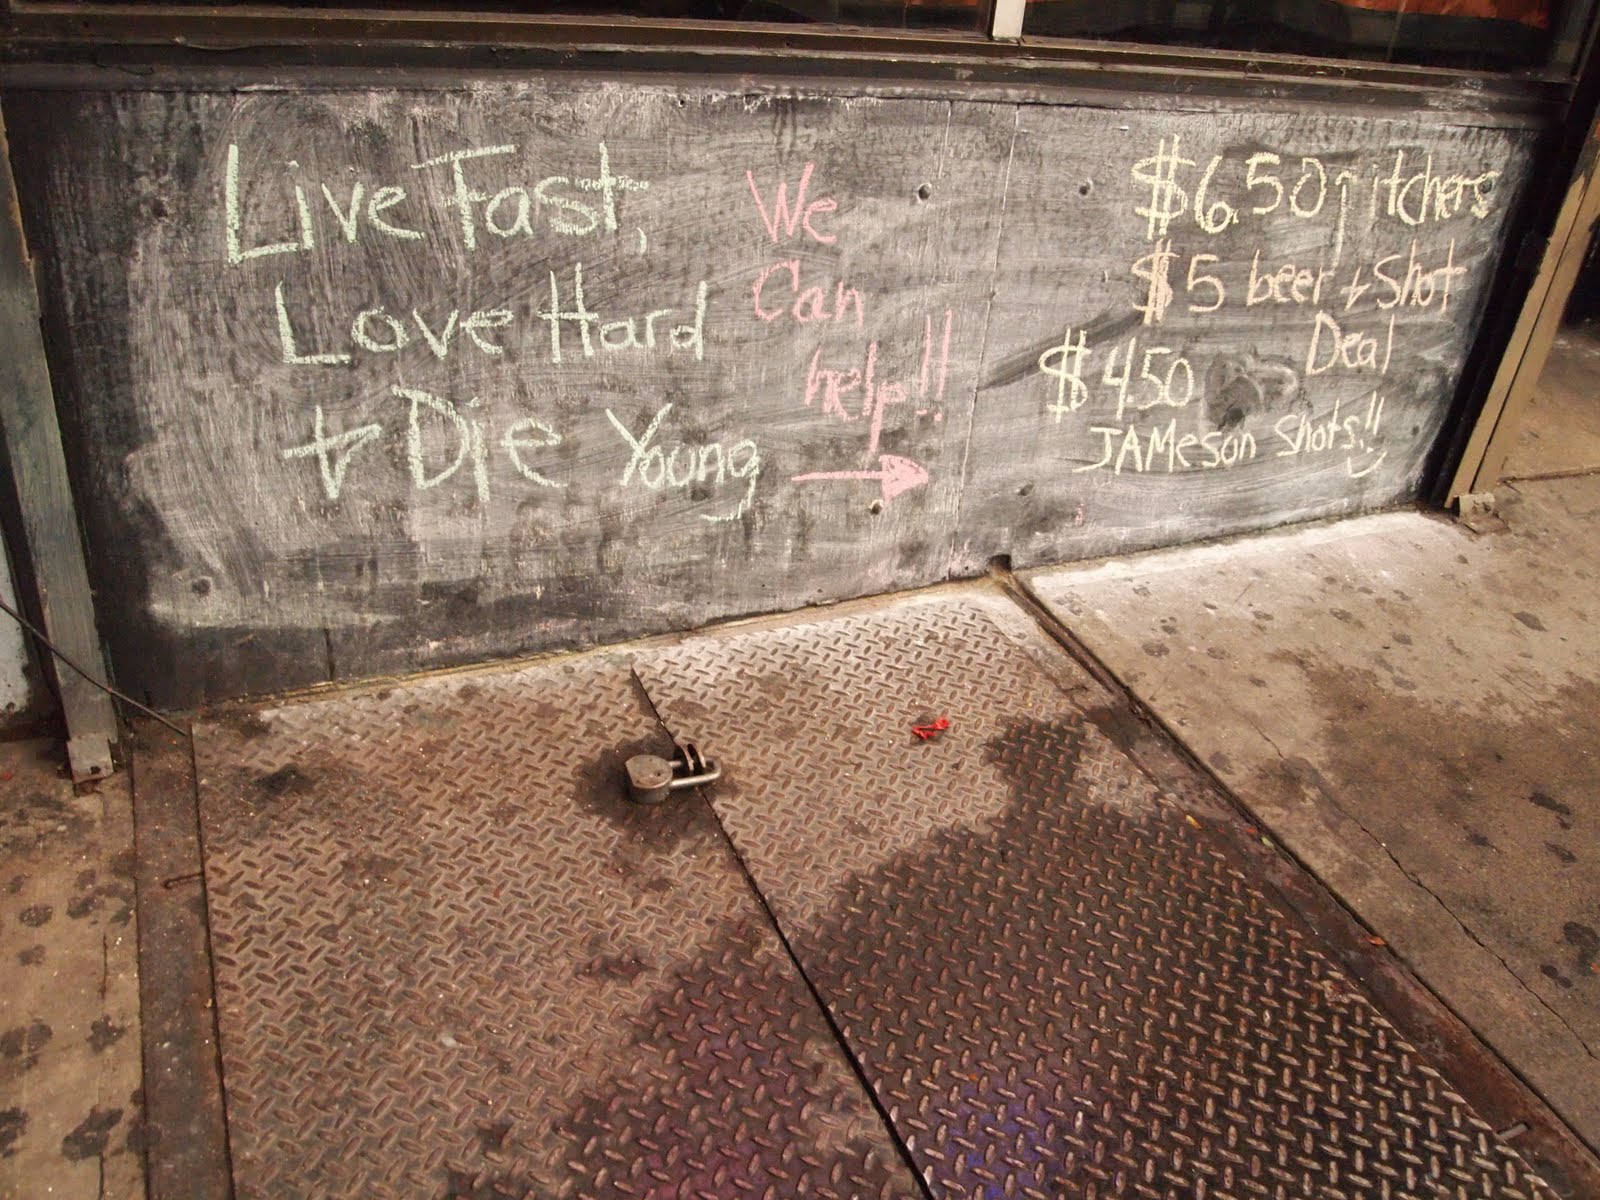 Live Fast,
Love Hard
+ Die Young
We
Can
help!!
$6.50 pitchers
$5 beer + Shot
Deal
$4.50
JAMeson Shots!!